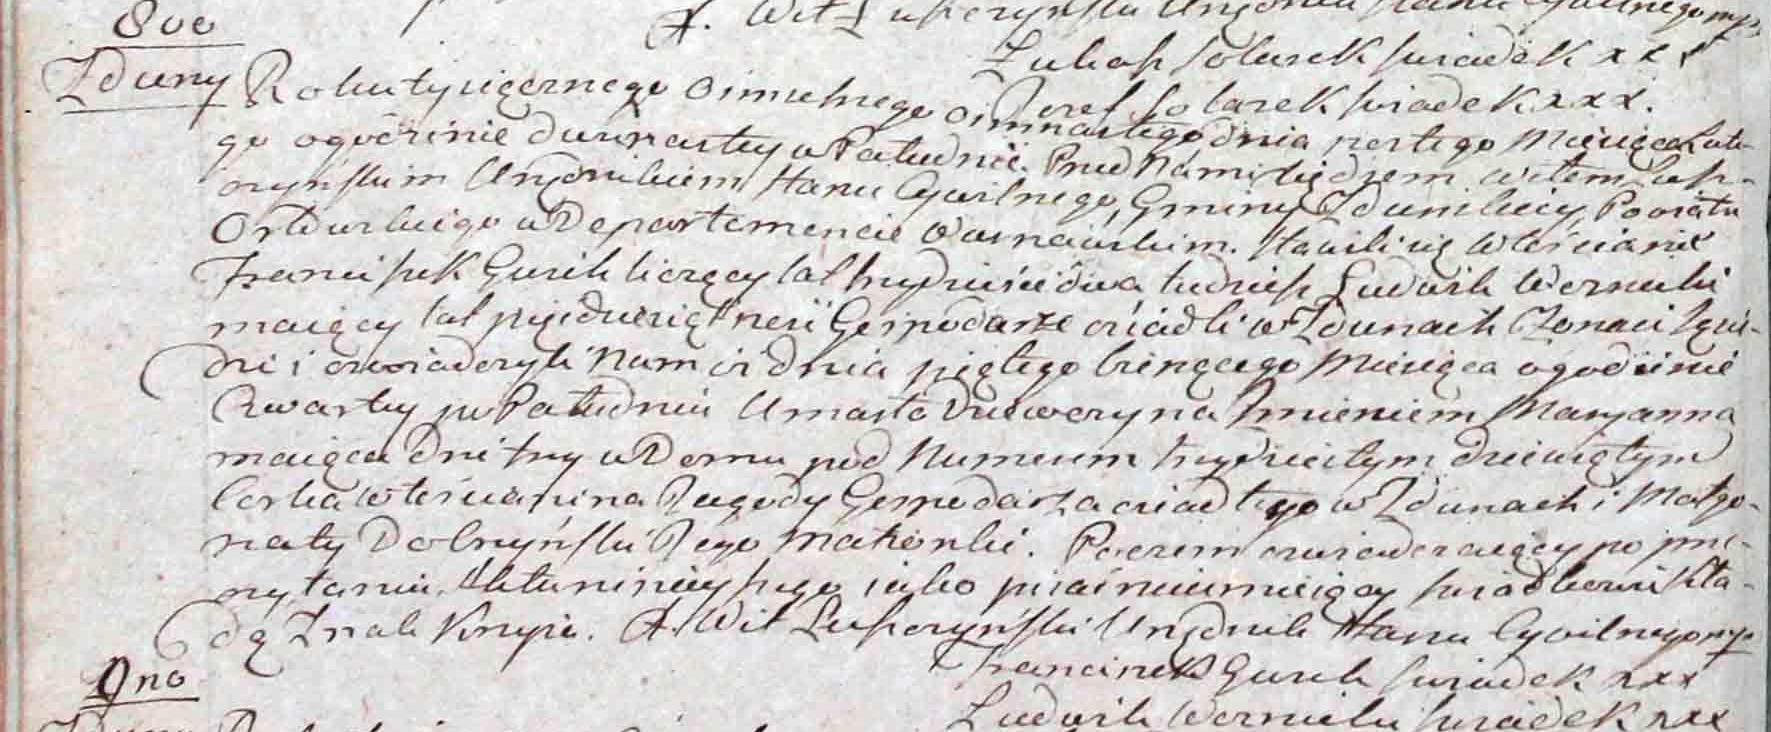 8vo
X. Wit Łuszczyński Urzędnik Stanu Cywilnego mp.
Łukasz Solarek Swiadek xxx
Zduny
Jozef Solarek Swiadek xxx.
Roku tysiącznego osmsetnego osmnastego dnia szostego Miesiąca Lute-
go ogodzinie dwunastey w Południe. Przed Nami Xiędzem Witem Łusz-
czyńskim Urzędnikiem Stanu Cywilnego, Gminy Zdunskiey, Powiatu
Orłowskiego w Departemencie Warszawskim. Stawili się Włościanie
Franciszek Gusik liczący lat trzydzieście dwa tudzież Ludwik Wernicki
maiący lat pięćdziesiąt sześć Gospodarze osiadli w Zdunach Zonaci Sąsie-
dzi i oswiadczyli Nam iż dnia piątego bieżącego Miesiąca ogodzinie
Czwartey po Południu Umarła Dziewczyna Imieniem Maryanna
maiąca dni trzy w Domu pod Numerem trzydziestym dziewiątym
Corka Włościanina Zagody Gospodarza osiadłego w Zdunach i Małgo-
rzaty Dolzyńskii Jego Małżonki. Poczem oswiadczaiący po prze-
czytaniu Aktu ninieyszego iako pisać nieumieiący swiadkowie kła-
dą Znak Krzyża. X. Wit Łuszczyński Urzędnik Stanu Cywilnego mp
Franciszek Gusik Swiadek xxx
9no
Ludwik Wernicki Swiadek xxx
Zduny